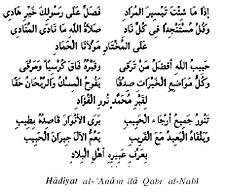 إذا ما شئت تيسير المراد فصل على رسولك خير هادي
وكل مستنجدا في كل ناد صلاة الله ما نادى المنادي
على المختار مولانا الحماد
حبيب الله أفضل من ترقى وقبره فاق كرسيا ومرقى
وكل مواضع الخيرات صدقا يفوح المسك والريحان حقا
لقبر محمد نور الفؤاد
تنور جميع أرجاء الحبيب يرى الأنوار قاصده بطيب
ويلقاه البعيد مع القريب يعم الآل جيران الحبيب
بعرف عبيره أهل البلاد
Hādiyat al-'Anām ilā Qabr al-Nabī